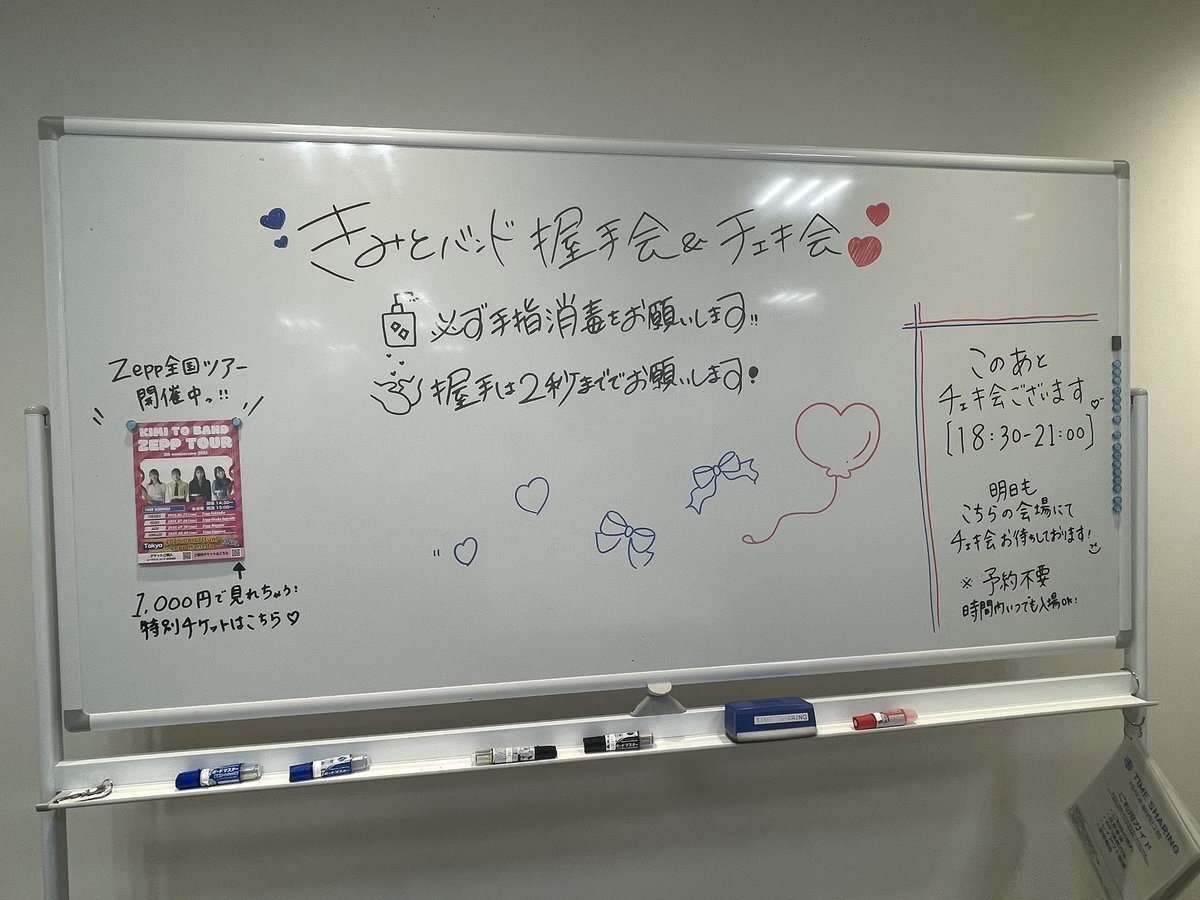 きみとバンド 握手会 & チェキ会
必ず手指消毒をお願いします!!
握手は2秒まででお願いします!
Zepp全国ツアー
開催中っ!!
KIMI TO BAND
ZEPP TOUR
Tokyo
1,000円で見れちゃう!
特別チケットはこちら♡
このあと
チェキ会ございます♡
[18:30-21:00]
明日も
こちらの会場にて
チェキ会お待ちしております!
※ 予約不要
時間内いつでも入場OK!
TIME SHARING
ボードマスター
TIME SHARING
ご利用ガイド